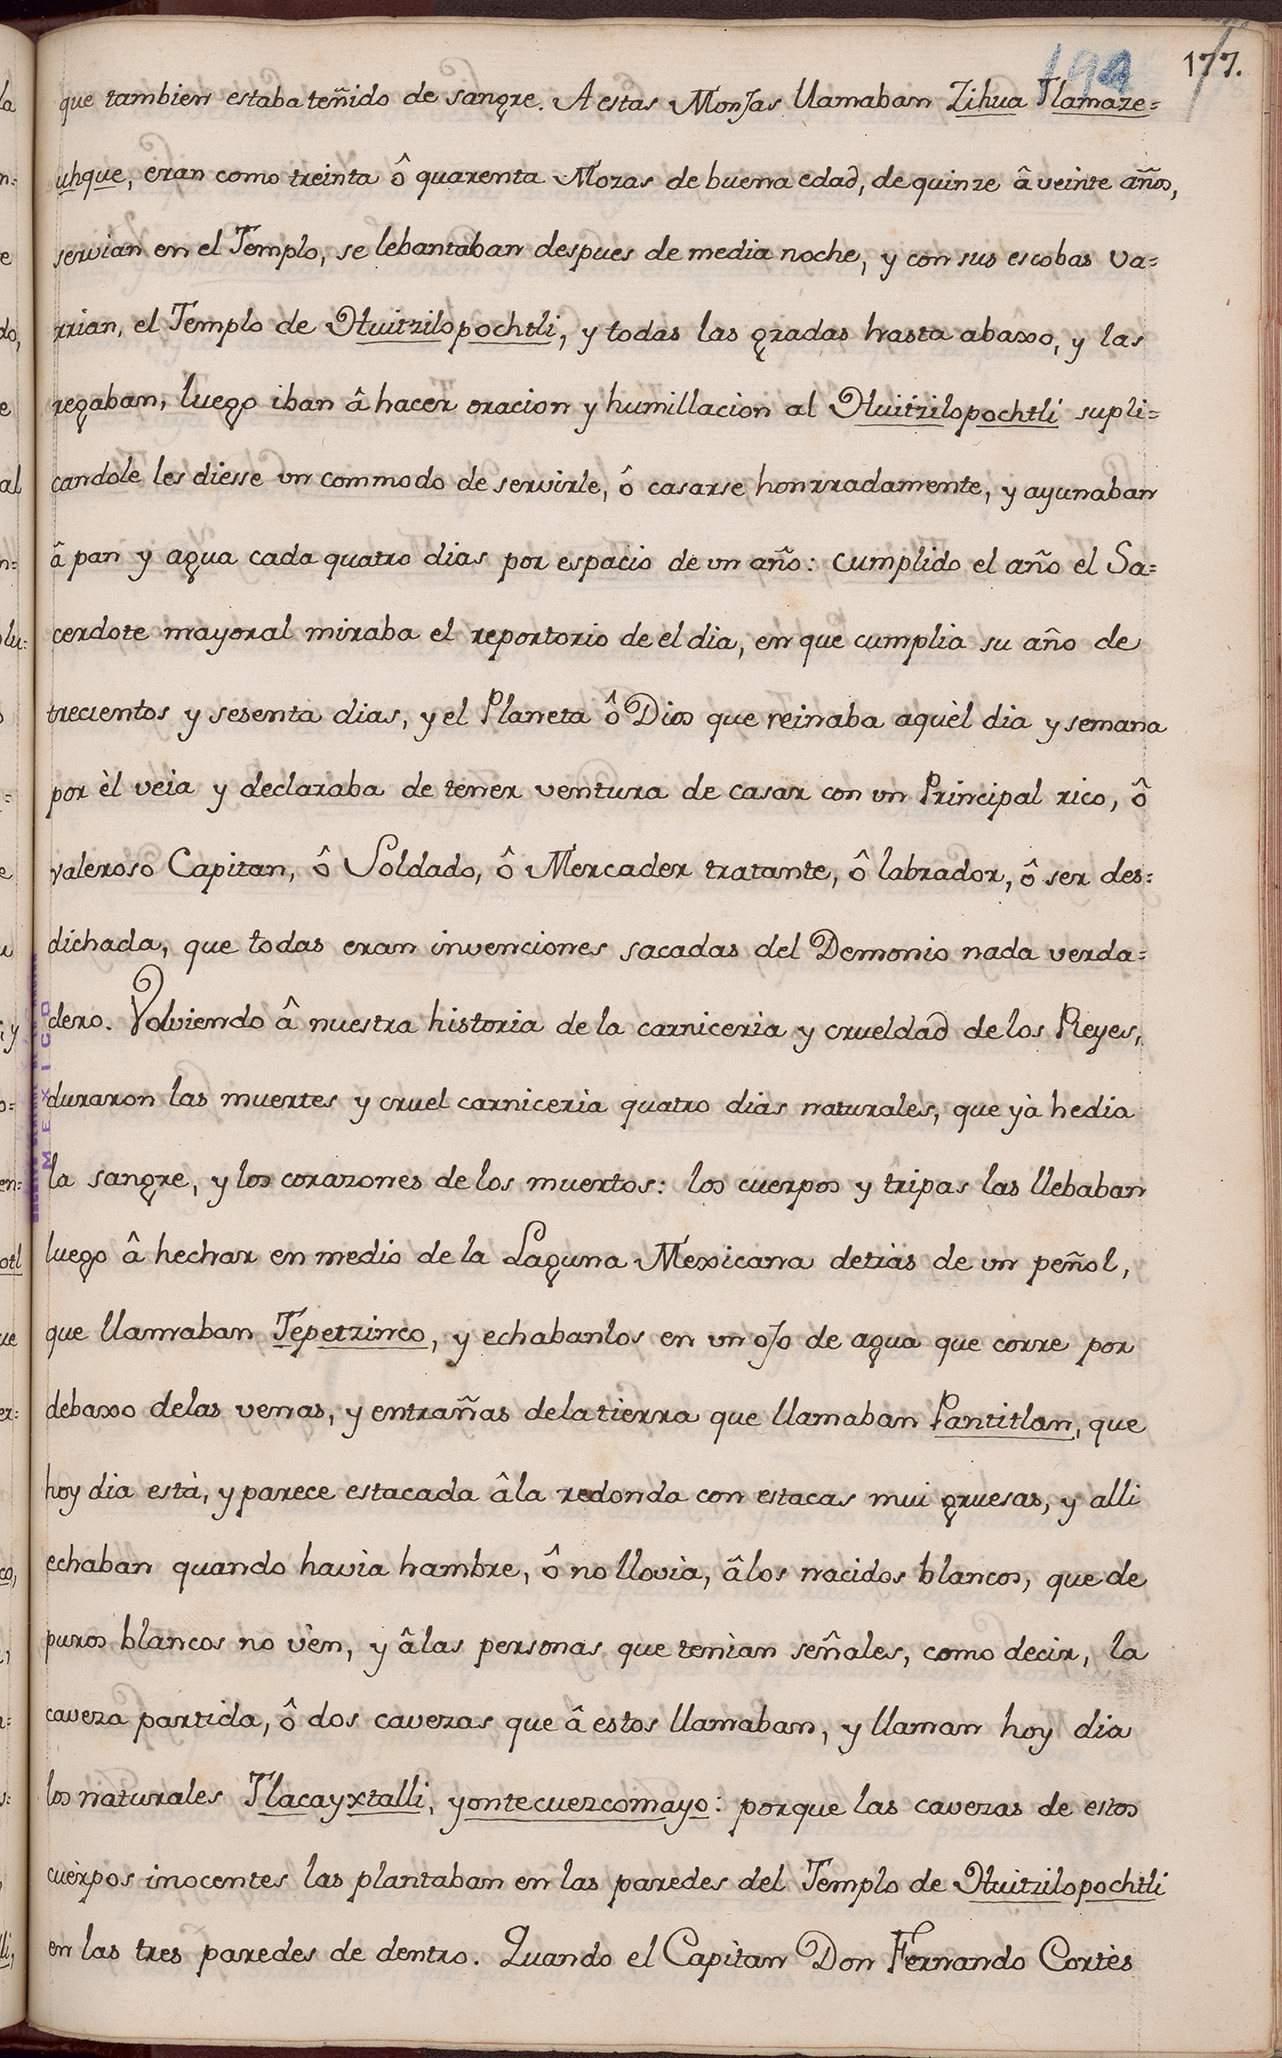 194 177.
que tambien estaba teñido de sangre. A estas Monjas llamaban Zihua Tlamaze=
uhque, eran como treinta ô quarenta Mozas de buena edad, de quinze â veinte años,
servian en el Templo, se lebantaban despues de media noche, y con sus escobas va=
rrian, el Templo de Huitzilopochtli, y todas las gradas hasta abaxo, y las
regaban, luego iban â hacer oracion y humillacion al Huitzilopochtli supli=
candole les diesse un commodo de servirle, ô casarse honrradamente, y ayunaban
â pan y agua cada quatro dias por espacio de un año: cumplido el año el Sa=
cerdote mayoral miraba el reportorio de el dia, en que cumplia su año de
trecientos y sesenta dias, y el Planeta ô Dios que reinaba aquèl dia y semana
por èl veia y declaraba de tener ventura de casar con un Principal rico, ô
valeroso Capitan, ô Soldado, ô Mercader tratante, ô labrador, ô ser des=
dichada, que todas eran invenciones sacadas del Demonio nada verda=
dero. Volviendo â nuestra historia de la carniceria y crueldad de los Reyes,
duraron las muertes y cruel carniceria quatro dias naturales, que yà hedia
la sangre, y los corazones de los muertos: los cuerpos y tripas las llebaban
luego â hechar en medio de la Laguna Mexicana detràs de un peñol,
que llamaban Tepetzinco, y echabanlos en un ojo de agua que corre por
debaxo delas venas, y entrañas dela tierra que llamaban Pantitlan, que
hoy dia està, y parece estacada âla redonda con estacas mui gruesas, y alli
echaban quando havia hambre, ô no llovia, âlos nacidos blancos, que de
puros blancos no vèn, y âlas personas que tenian señales, como decir, la
caveza partida, ô dos cavezas que â estos llamaban, y llaman hoy dia
los naturales Tlacayxtalli, yontecuezcomayo: porque las cavezas de estos
cuèrpos inocentes las plantaban en las paredes del Templo de Huitzilopochtli
en las tres paredes de dentro. Quando el Capitan Don Fernando Cortès
MEXICO